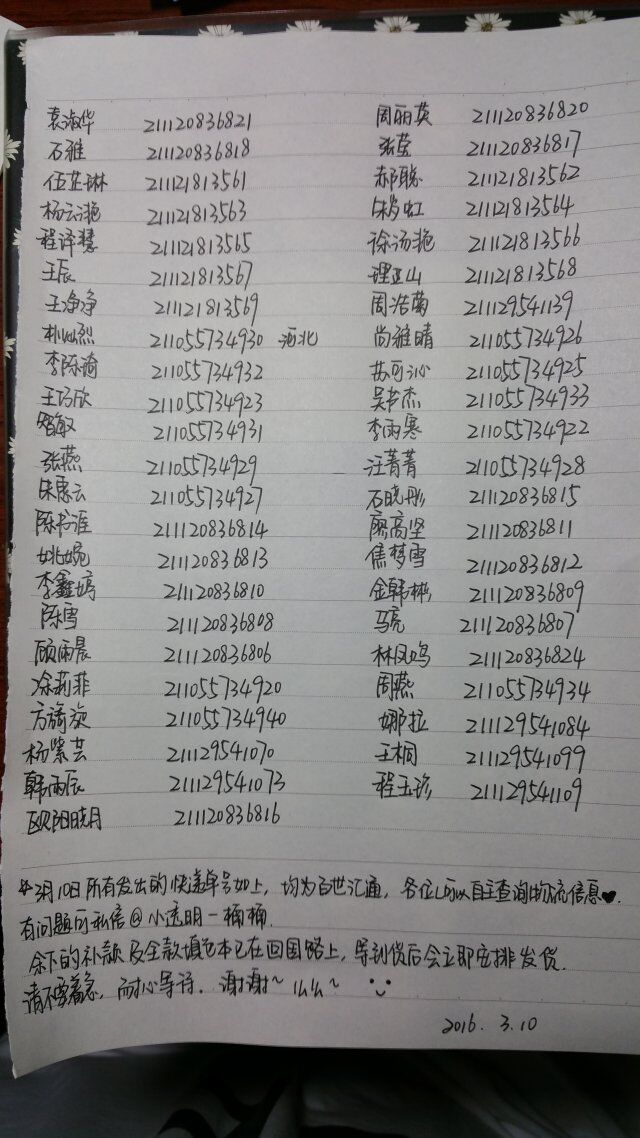 袁淑华 211120836821 周丽英 211120836820
石雅 211120836818 张莹 211120836817
伍芷琳 211121813561 郝聪 211121813562
杨云滟 211121813563 朱虹 211121813564
程译慧 211121813565 徐汤艳 211121813566
王辰 211121813567 理亚山 211121813568
王净净 211121813569 周浩菊 211129541139
朴灿烈 211055734930 河北 尚雅晴 211055734926
李陈渝 211055734932 苏可沁 211055734925
王巧欣 211055734923 吴书杰 211055734933
智敏 211055734931 李雨寒 211055734922
张燕 211055734929 汪菁菁 211055734928
朱惠云 211055734927 石晓彤 211120836815
陈书涯 211120836814 廖高坚 211120836811
姚婉 211120836813 焦梦雪 211120836812
李鑫婷 211120836810 金韩彬 211120836809
陈雪 211120836808 马亮 211120836807
顾雨晨 211120836806 林凤鸣 211120836824
涂莉菲 211055734920 周燕 211055734934
方旖旋 211055734940 娜拉 211129541084
杨紫芸 211129541070 王桐 211129541099
韩雨辰 211129541073 程玉珍 211129541109
欧阳晓月 211120836816
#3月10日所有发出的快递单号如上，均为百世汇通，各位可以自主查询物流信息♥.
有问题可私信@小透明一桶桶.
余下的补款及全款填色本已在回国路上，等到货后会立即安排发货.
请不要着急，耐心等待. 谢谢~ 么么~
2016. 3.10